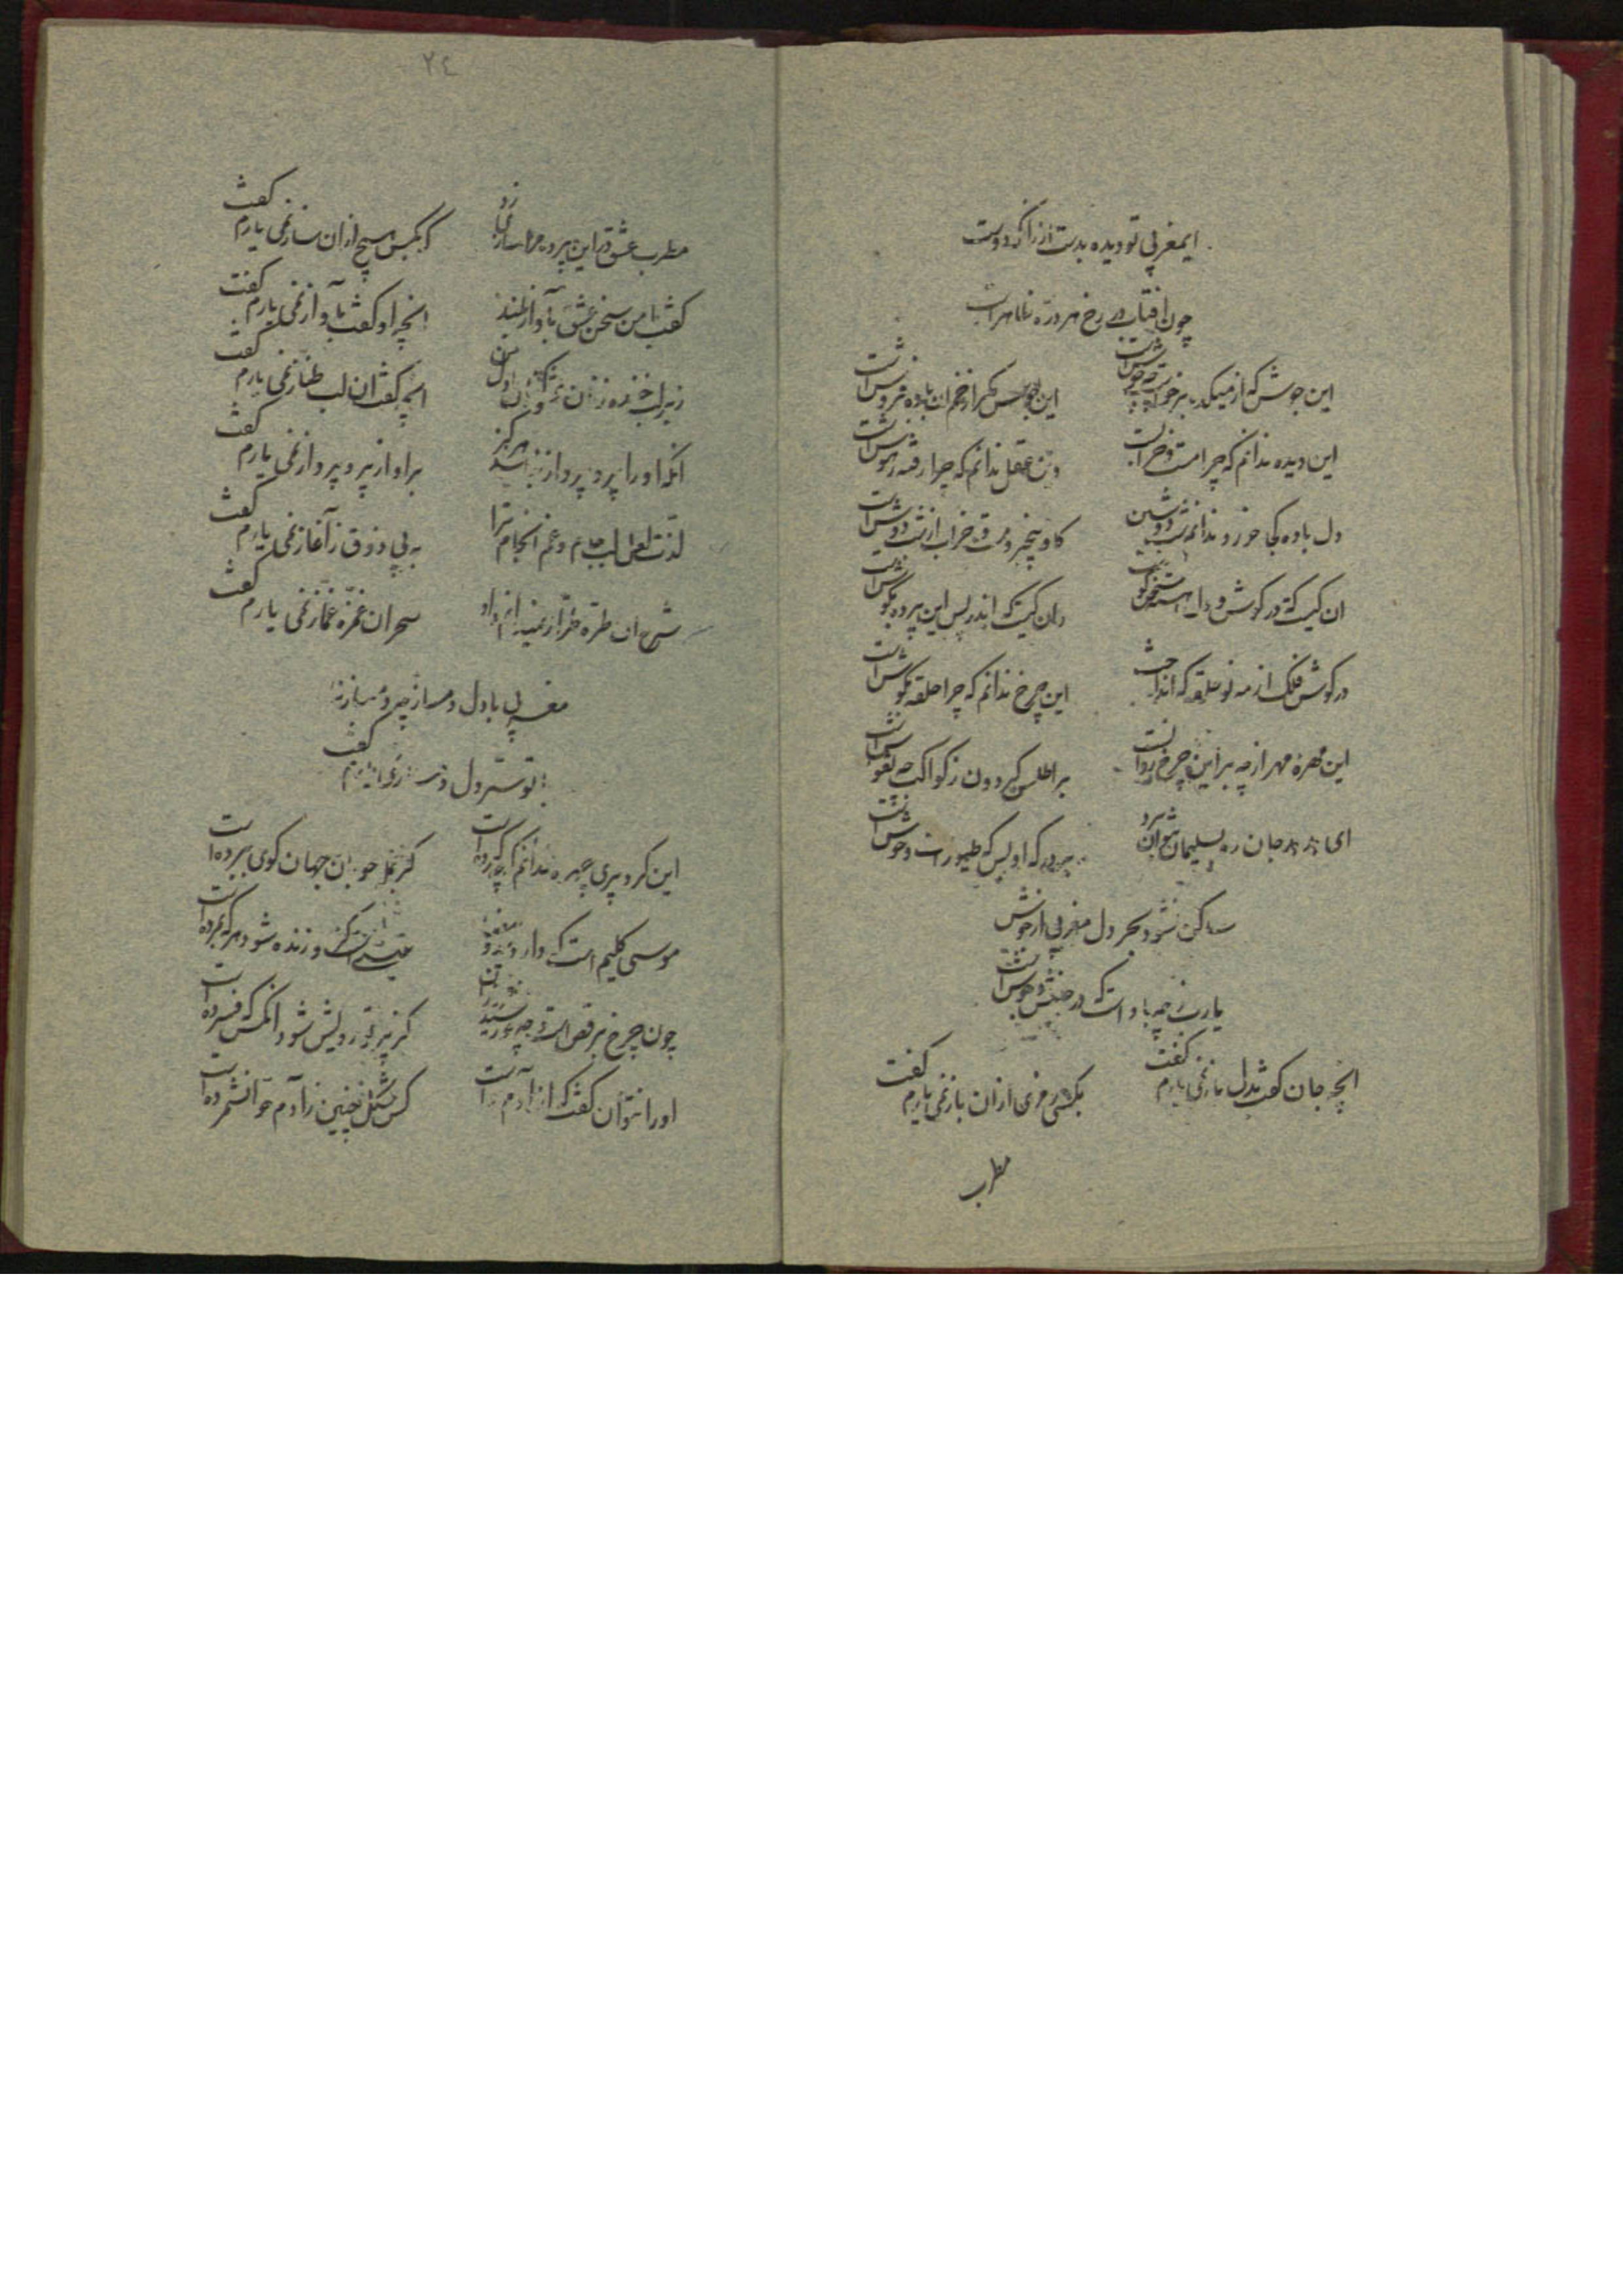 ایمغربی تو دیده بدست ار زانکه دوست
چون افتاب در رخ هر ذره ظاهر است
این جوش که از میکده برخواسته چه جوش است
این جوش مگر از خم ان باده فروش است
این دیده ندانم که چرا مست و خرابست
وین عقل ندانم که چرا رفته ز هوش است
دل باده کجا خورد ندانم شب دوشین
کاو بیخبر و مست و خراب از شب دوش است
ان کیست که در گوش دل اهسته سخن گوست
وان کیست که اندر پس این پرده بگوش است
در گوش فلک از مه نو حلقه که انداخت
این چرخ ندانم که چرا حلقه بگوش است
این مهره مهر از چه بر این چرخ روانست
بر اطلس گردون ز کواکب چه نقوش است
ای هدهد جان ره بسلیمان نتوان برد
بر درگه او بس که طیور است و حوش است
ساکن نشود بحر دل مغربی از جوش
یارب چه باد است که در جنبش و جوش است
انچه جان گفت بدل باز نمی یارم گفت
بکسی رمزی ازان باز نمی یارم گفت
مطرب
۲٤
مطرب عشق در این پرده مرا سازی زد
که بکس هیچ ازان ساز نمی یارم گفت
گفت با من سخن عشق بآواز بلند
انچه او گفت بآواز نمی یارم گفت
زیر لب خنده زنان
انچه گفت ان لب طناز نمی یارم گفت
انکه او را پر و پرواز نباشد هرگز
بر او از پر و پرواز نمی یارم گفت
لذت لعل لب جام و غم انجام ترا
به بی ذوق ز آغاز نمی یارم گفت
شرح ان طره طرار نمییارم داد
سحر ان غمزه غماز نمی یارم گفت
مغربی با دل دمساز چو دمساز نه
بتو سر دل دمساز نمی یارم گفت
این کرد پری چهره ندانم که چه کرده است
کز جمله خوبان جهان گوی ببرده است
موسی کلیم است که دارد ید بیضا
عیسی است کزو زنده شود هر که بمرده است
چون چرخ برقص است و چو خورشید
کز پرتو رویش شود انکس که فسرده است
او را نتوان گفت که از آدم است
کس شکل چنین ز آدم و حوا نشمرده است